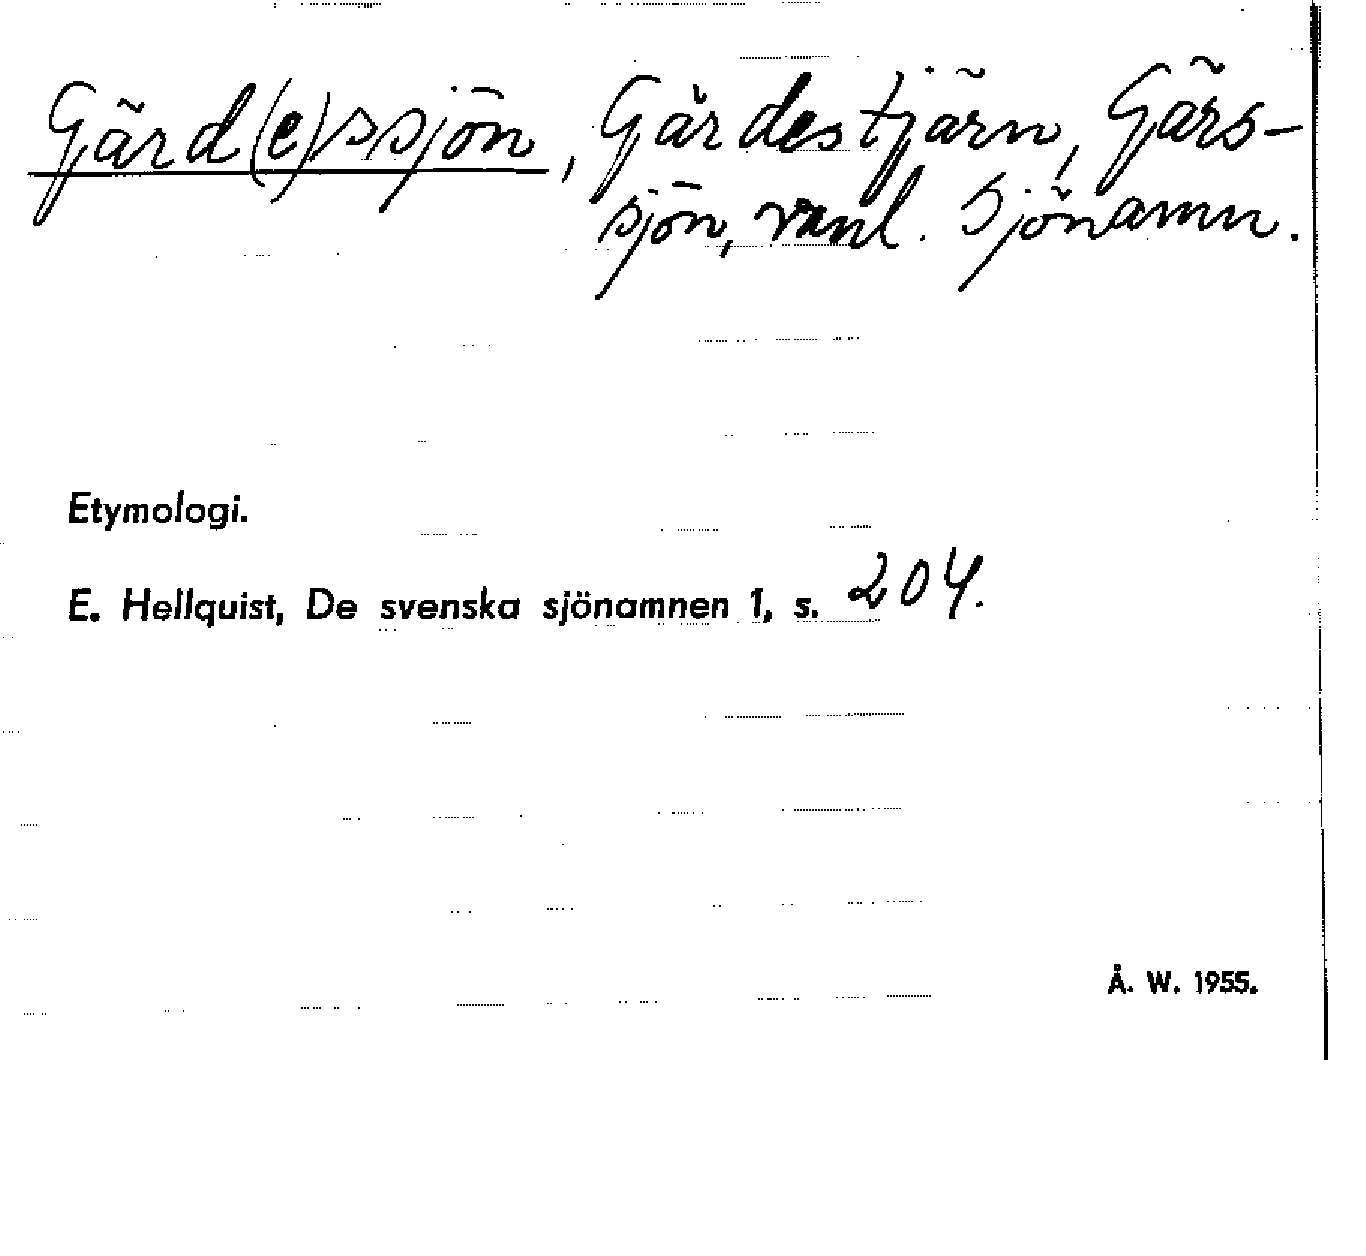 Gärd(e)ssjön, Gärdestjärn, Gärs-
sjön, vanl. sjönamn.
Etymologi.
E. Hellquist, De svenska sjönamnen 1, s. 204.
Å. W. 1955.